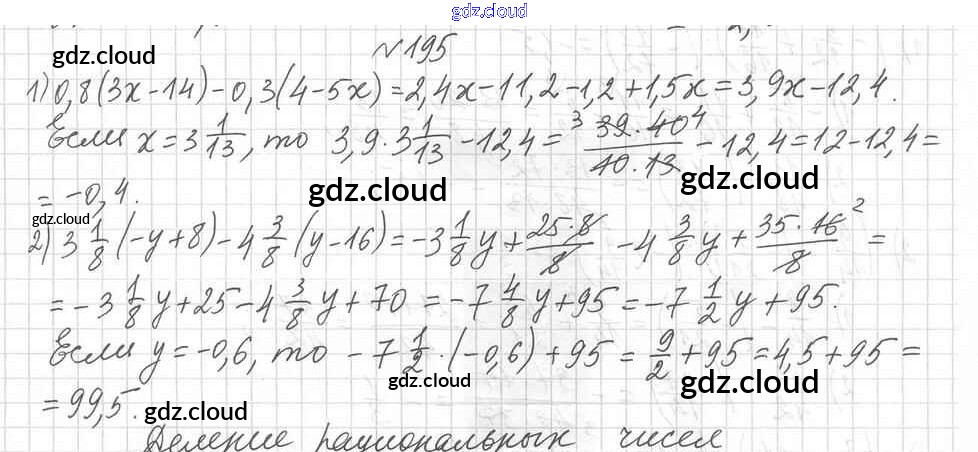 gdz.cloud
gdz.cloud
№195
1) 0,8(3x-14)-0,3(4-5x)=2,4x-11,2-1,2+1,5x=3,9x-12,4.
Если x=3 1/13, то 3,9·3 1/13 -12,4= ³ 39·40⁴/10·13 -12,4=12-12,4=
gdz.cloud
gdz.cloud
=-0,4.
gdz.cloud
2) 3 1/8 (-y+8)-4 3/8 (y-16)=-3 1/8 y+ 25·8/8 -4 3/8 y+ 35·16²/8 =
=-3 1/8 y+25-4 3/8 y+70 =-7 4/8 y+95=-7 1/2 y+95.
Если y=-0,6, то -7 1/2 ·(-0,6)+95= 9/2 +95=4,5+95=
gdz.cloud
gdz.cloud
=99,5.
gdz.cloud
Деление рациональных чисел